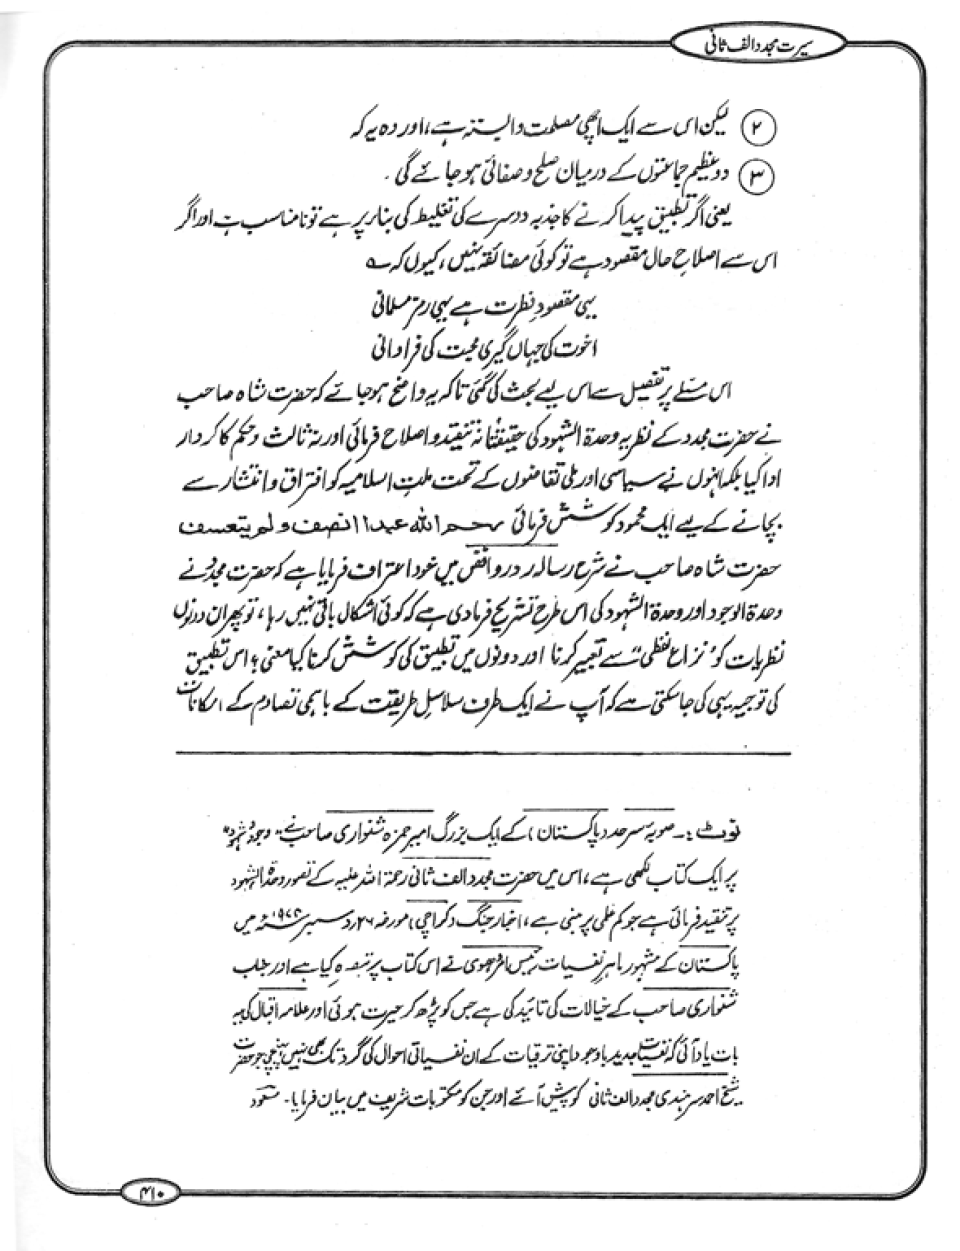 سیرت مجدد الف ثانی
۲ لیکن اس سے ایک اچھی مصلحت وابستہ ہے، اور وہ یہ کہ
۳ دو عظیم جماعتوں کے درمیان صلح و صفائی ہو جائے گی۔
یعنی اگر تطبیق پیدا کرنے کا جذبہ دوسرے کی تغلیط کی بناء پر ہے تو نامناسب ہے اور اگر
اس سے اصلاحِ حال مقصود ہے تو کوئی مضائقہ نہیں، کیوں کہ ؎
یہی مقصودِ فطرت ہے یہی رمزِ مسلمانی
اخوت کی جہاں گیری محبت کی فراوانی
اس مسئلے پر تفصیل سے اس لیے بحث کی گئی تاکہ یہ واضح ہو جائے کہ حضرت شاہ صاحب
نے حضرت مجدد کے نظریہ وحدۃ الشہود کی حقیقتًا نہ تنقید و اصلاح فرمائی اور نہ ثالث و حکم کا کردار
ادا کیا بلکہ انہوں نے سیاسی اور ملی تقاضوں کے تحت ملتِ اسلامیہ کو افتراق و انتشار سے
بچانے کے لیے ایک محمود کوشش فرمائی رحم اللہ عبدا انصف ولم یتعسف
حضرت شاہ صاحب نے شرح رسالہ رد روافض میں خود اعتراف فرمایا ہے کہ حضرت مجدد نے
وحدۃ الوجود اور وحدۃ الشہود کی اس طرح تشریح فرما دی ہے کہ کوئی اشکال باقی نہیں رہا، تو پھر ان دونوں
نظریات کو ”نزاعِ لفظی“ سے تعبیر کرنا اور دونوں میں تطبیق کی کوشش کرنا کیا معنی؟ اس تطبیق
کی توجیہ یہی کی جا سکتی ہے کہ آپ نے ایک طرف سلاسلِ طریقت کے باہمی تصادم کے امکانات
نوٹ:۔ صوبہ سرحد (پاکستان) کے ایک بزرگ امیر حمزہ شنواری صاحب نے ”وجود و شہود“
پر ایک کتاب لکھی ہے، اس میں حضرت مجدد الف ثانی رحمۃ اللہ علیہ کے تصور وحدۃ الشہود
پر تنقید فرمائی ہے جو کم علمی پر مبنی ہے، اخبار جنگ (کراچی) مورخہ ۲۶ دسمبر ۱۹۷۴ء میں
پاکستان کے مشہور ماہر نفسیات رئیس امروہوی نے اس کتاب پر تبصرہ کیا ہے اور جناب
شنواری صاحب کے خیالات کی تائید کی ہے جس کو پڑھ کر حیرت ہوئی اور علامہ اقبال کی یہ
بات یاد آئی کہ نفسیات جدید باوجود اپنی ترقیات کے ان نفسیاتی احوال کی گرد تک بھی نہیں پہنچی جو حضرت
شیخ احمد سرہندی مجدد الف ثانی کو پیش آئے اور جن کو مکتوبات شریف میں بیان فرمایا۔ مسعود
۴۱۰